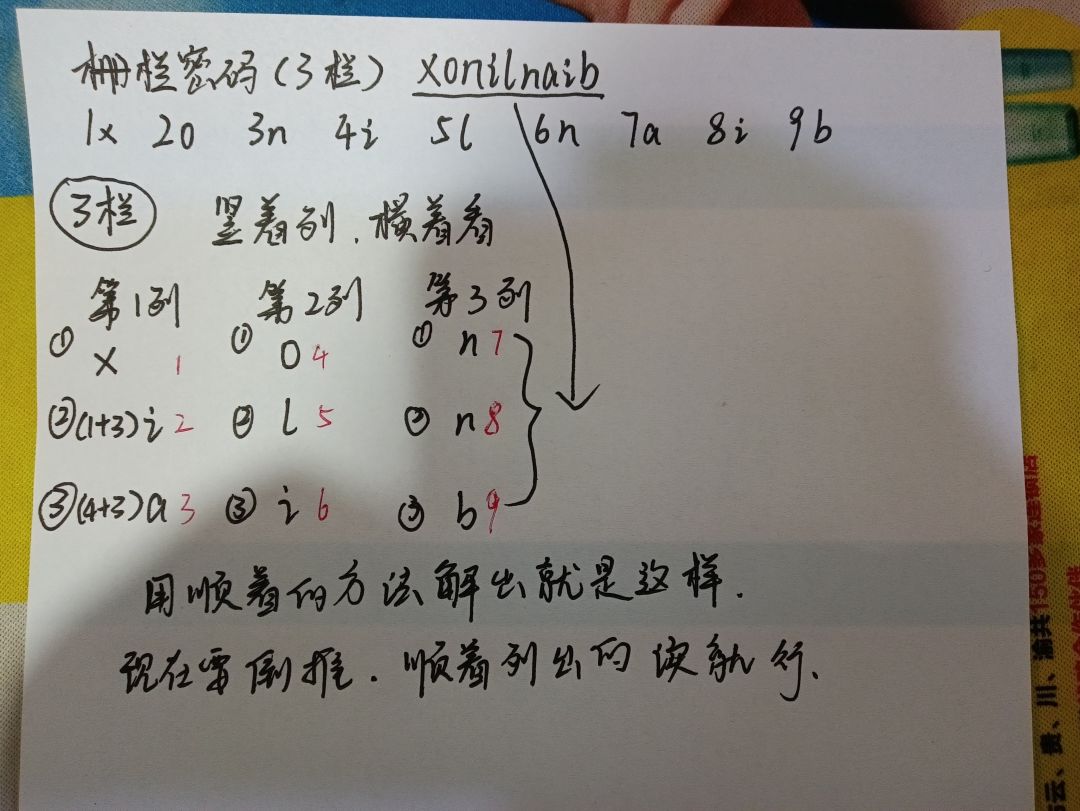 栅栏密码(3栏) xonilnaib
1x 2o 3n 4i 5l 6n 7a 8i 9b
3栏 竖着列.横着看
第1列 第2列 第3列
① x 1 ① o 4 ① n 7
②(1+3) i 2 ② l 5 ② n 8
③(4+3) a 3 ③ i 6 ③ b 9
用顺着的方法解出就是这样.
现在要倒推.顺着列出的读就行.
渝共150多家连锁店
云、贵、川、